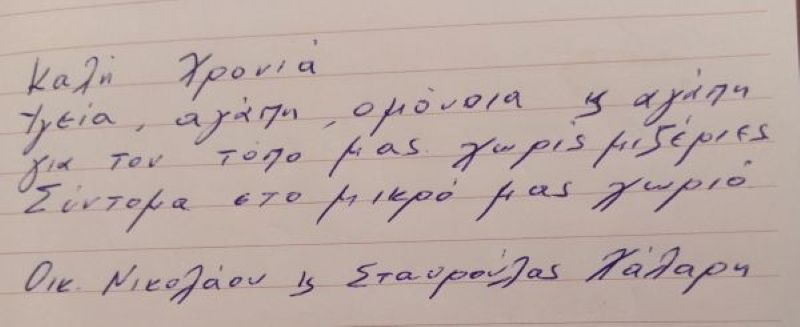 Καλή Χρονιά
Υγεία, αγάπη, ομόνοια κ αγάπη
για τον τόπο μας χωρίς μιζέριες
Σύντομα στο μικρό μας χωριό
Οικ. Νικολάου κ Σταυρούλας Χάλαρη